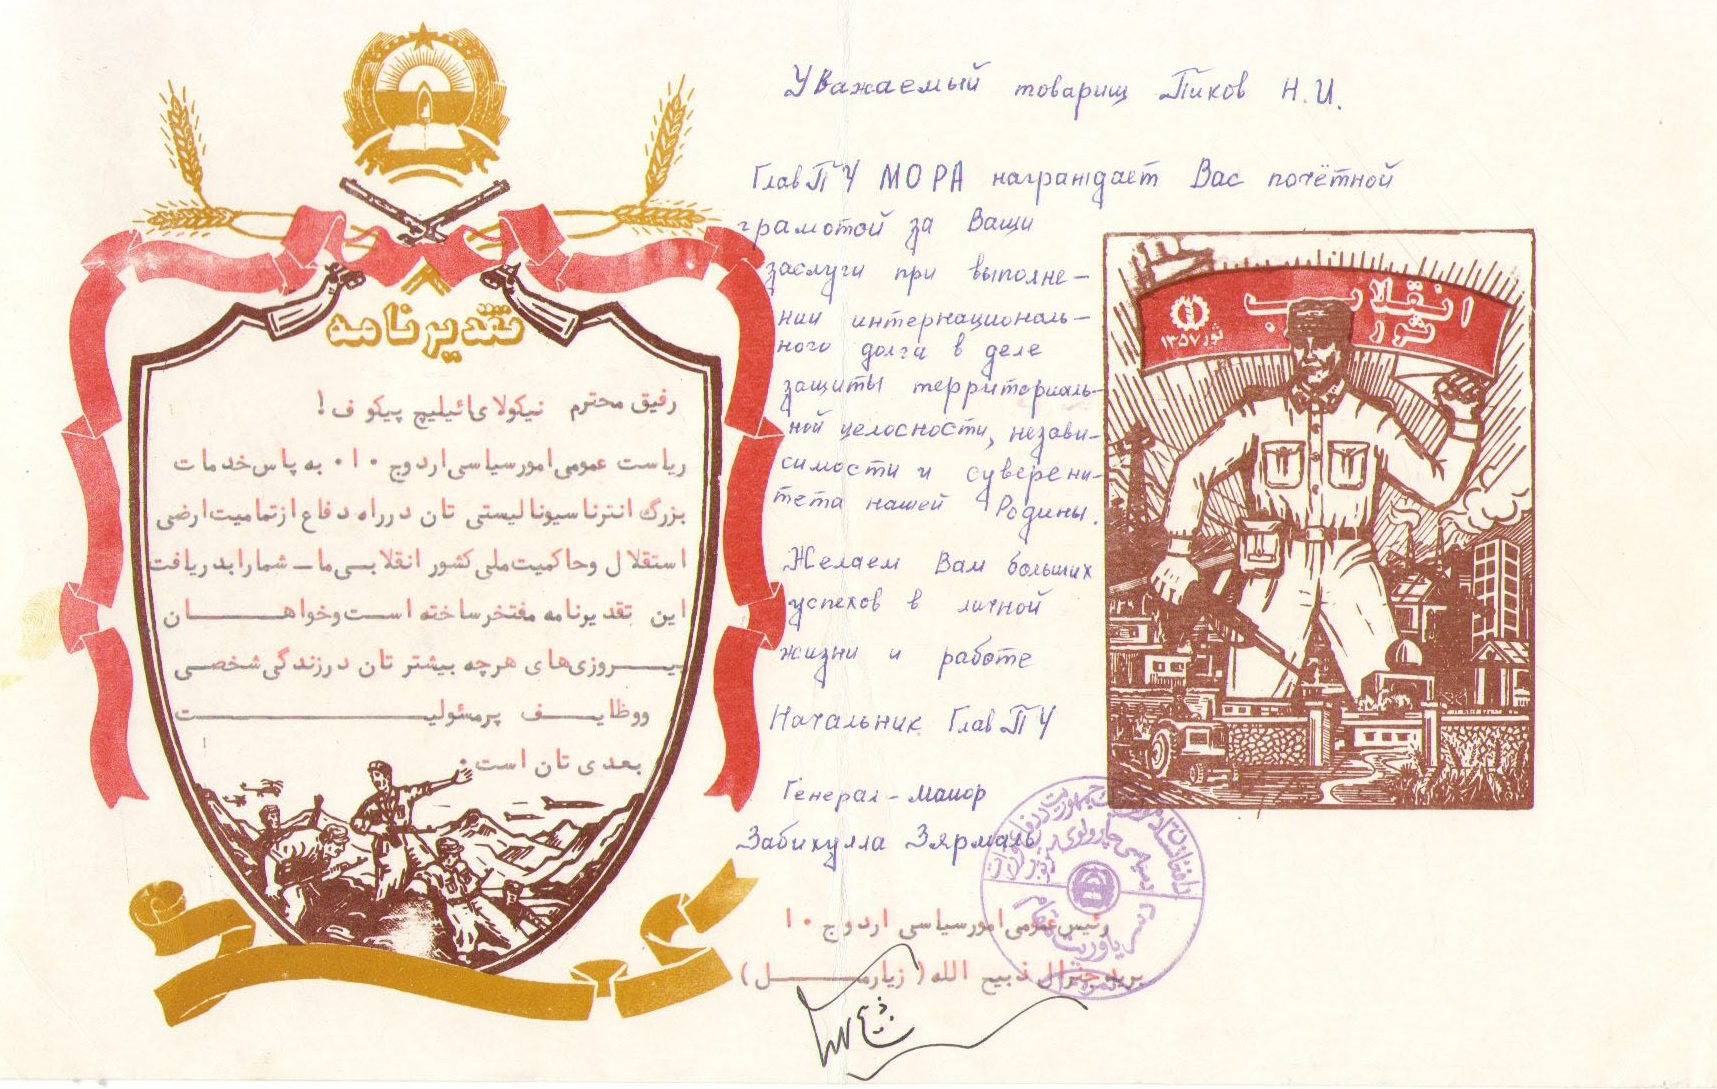 تقدیرنامه
رفیق محترم نیکولای ائیلیچ پیکوف!
ریاست عمومی امور سیاسی اردو ج ۰ ا ۰ به پاس خدمات
بزرگ انترناسیونالیستی تان در راه دفاع از تمامیت ارضی
استقلال و حاکمیت ملی کشور انقلابی ما ـ شما را بدریافت
این تقدیرنامه مفتخر ساخته است و خواهان
پیروزی های هرچه بیشتر تان در زندگی شخصی
و وظایف پرمسئولیت
بعدی تان است ۰
Уважаемый товарищ Пиков Н.И.
ГлавПУ МО РА награждает Вас почётной
грамотой за Ваши
заслуги при выполне-
нии интернациональ-
ного долга в деле
защиты территориаль-
ной целосности, незави-
симости и суверени-
тета нашей Родины.
Желаем Вам больших
успехов в личной
жизни и работе
Начальник ГлавПУ
Генерал-майор
Забихулла Зярмаль
رئیس عمومی امور سیاسی اردو ج ۰ ا
برید جنرال ذبیح الله (زیارمل)
انقلاب
ثور
ثور ۱۳۵۷